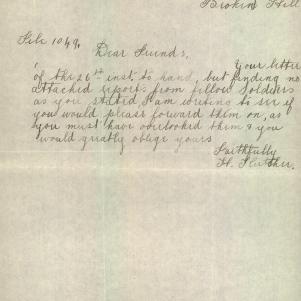 Broken Hill
File 1049.
Dear Friends,
Your letter
of the 26th inst. to hand, but finding no
attached reports from fellow soldiers
as you stated, I am writing to see if
you would please forward them on, as
you must have overlooked them & you
would greatly oblige yours
Faithfully
H.